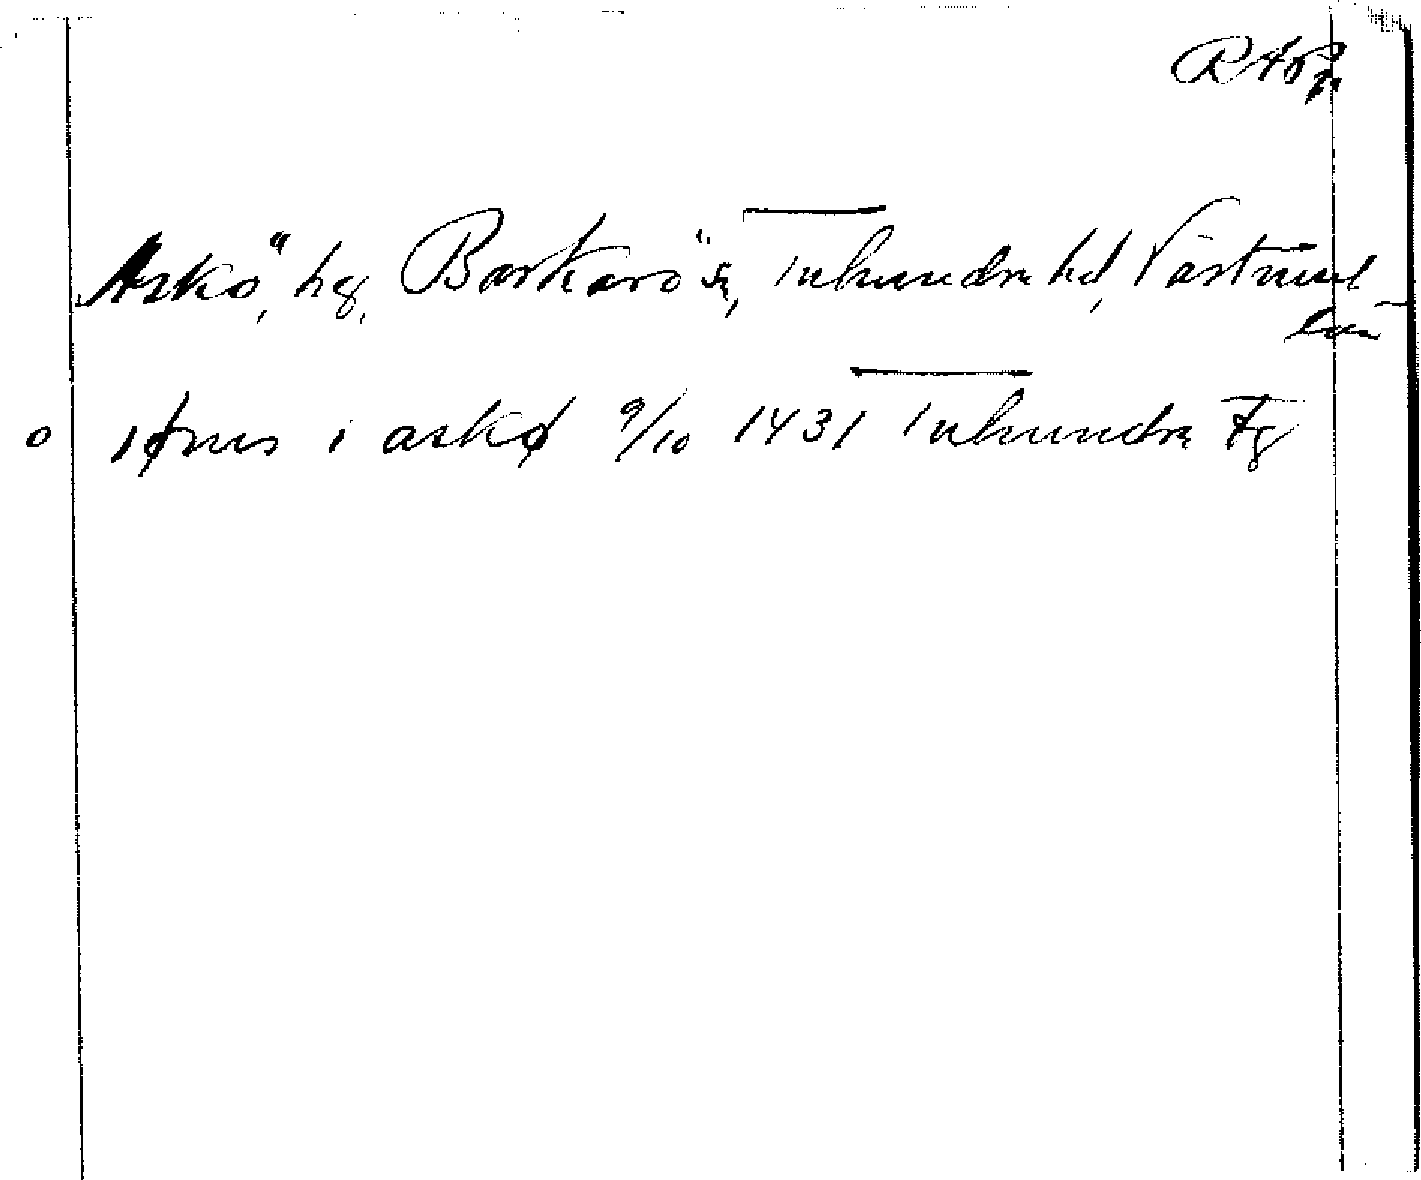 RAp
Askö, hg, Barkarö sn, Tuhundra hd, Västmanl
län
jønis i askø 9/10 1431 Tuhundra Fg